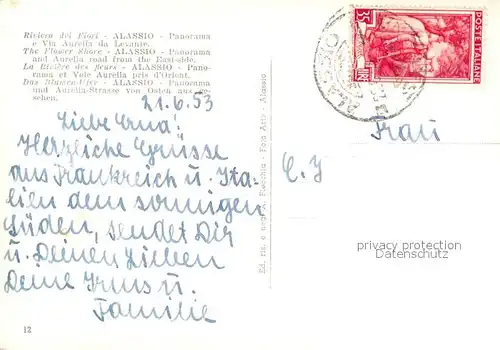 Riviera dei Fiori - ALASSIO - Panorama
e Via Aurelia da Levante.
The Flower Shore - ALASSIO - Panorama
and Aurelia road from the East-side.
La Rivière des fleurs - ALASSIO - Pano-
rama et Voie Aurelia pris d'Orient.
Das Blumen-Ufer - ALASSIO - Panorama
und Aurelia-Strasse von Osten aus ge-
sehen.
21.6.53
Liebe Erna!
Herzliche Grüsse
aus Frankreich u. Ita-
lien dem sonnigen
Süden, sendet Dir
u. Deinen Lieben
Deine Irmg u.
Familie
12
Ed. ris. e negr. - Foto Astr. - Alassio
35
LIRE
POSTE ITALIANE
ALASSIO
Frau
C. J
privacy protection
Datenschutz